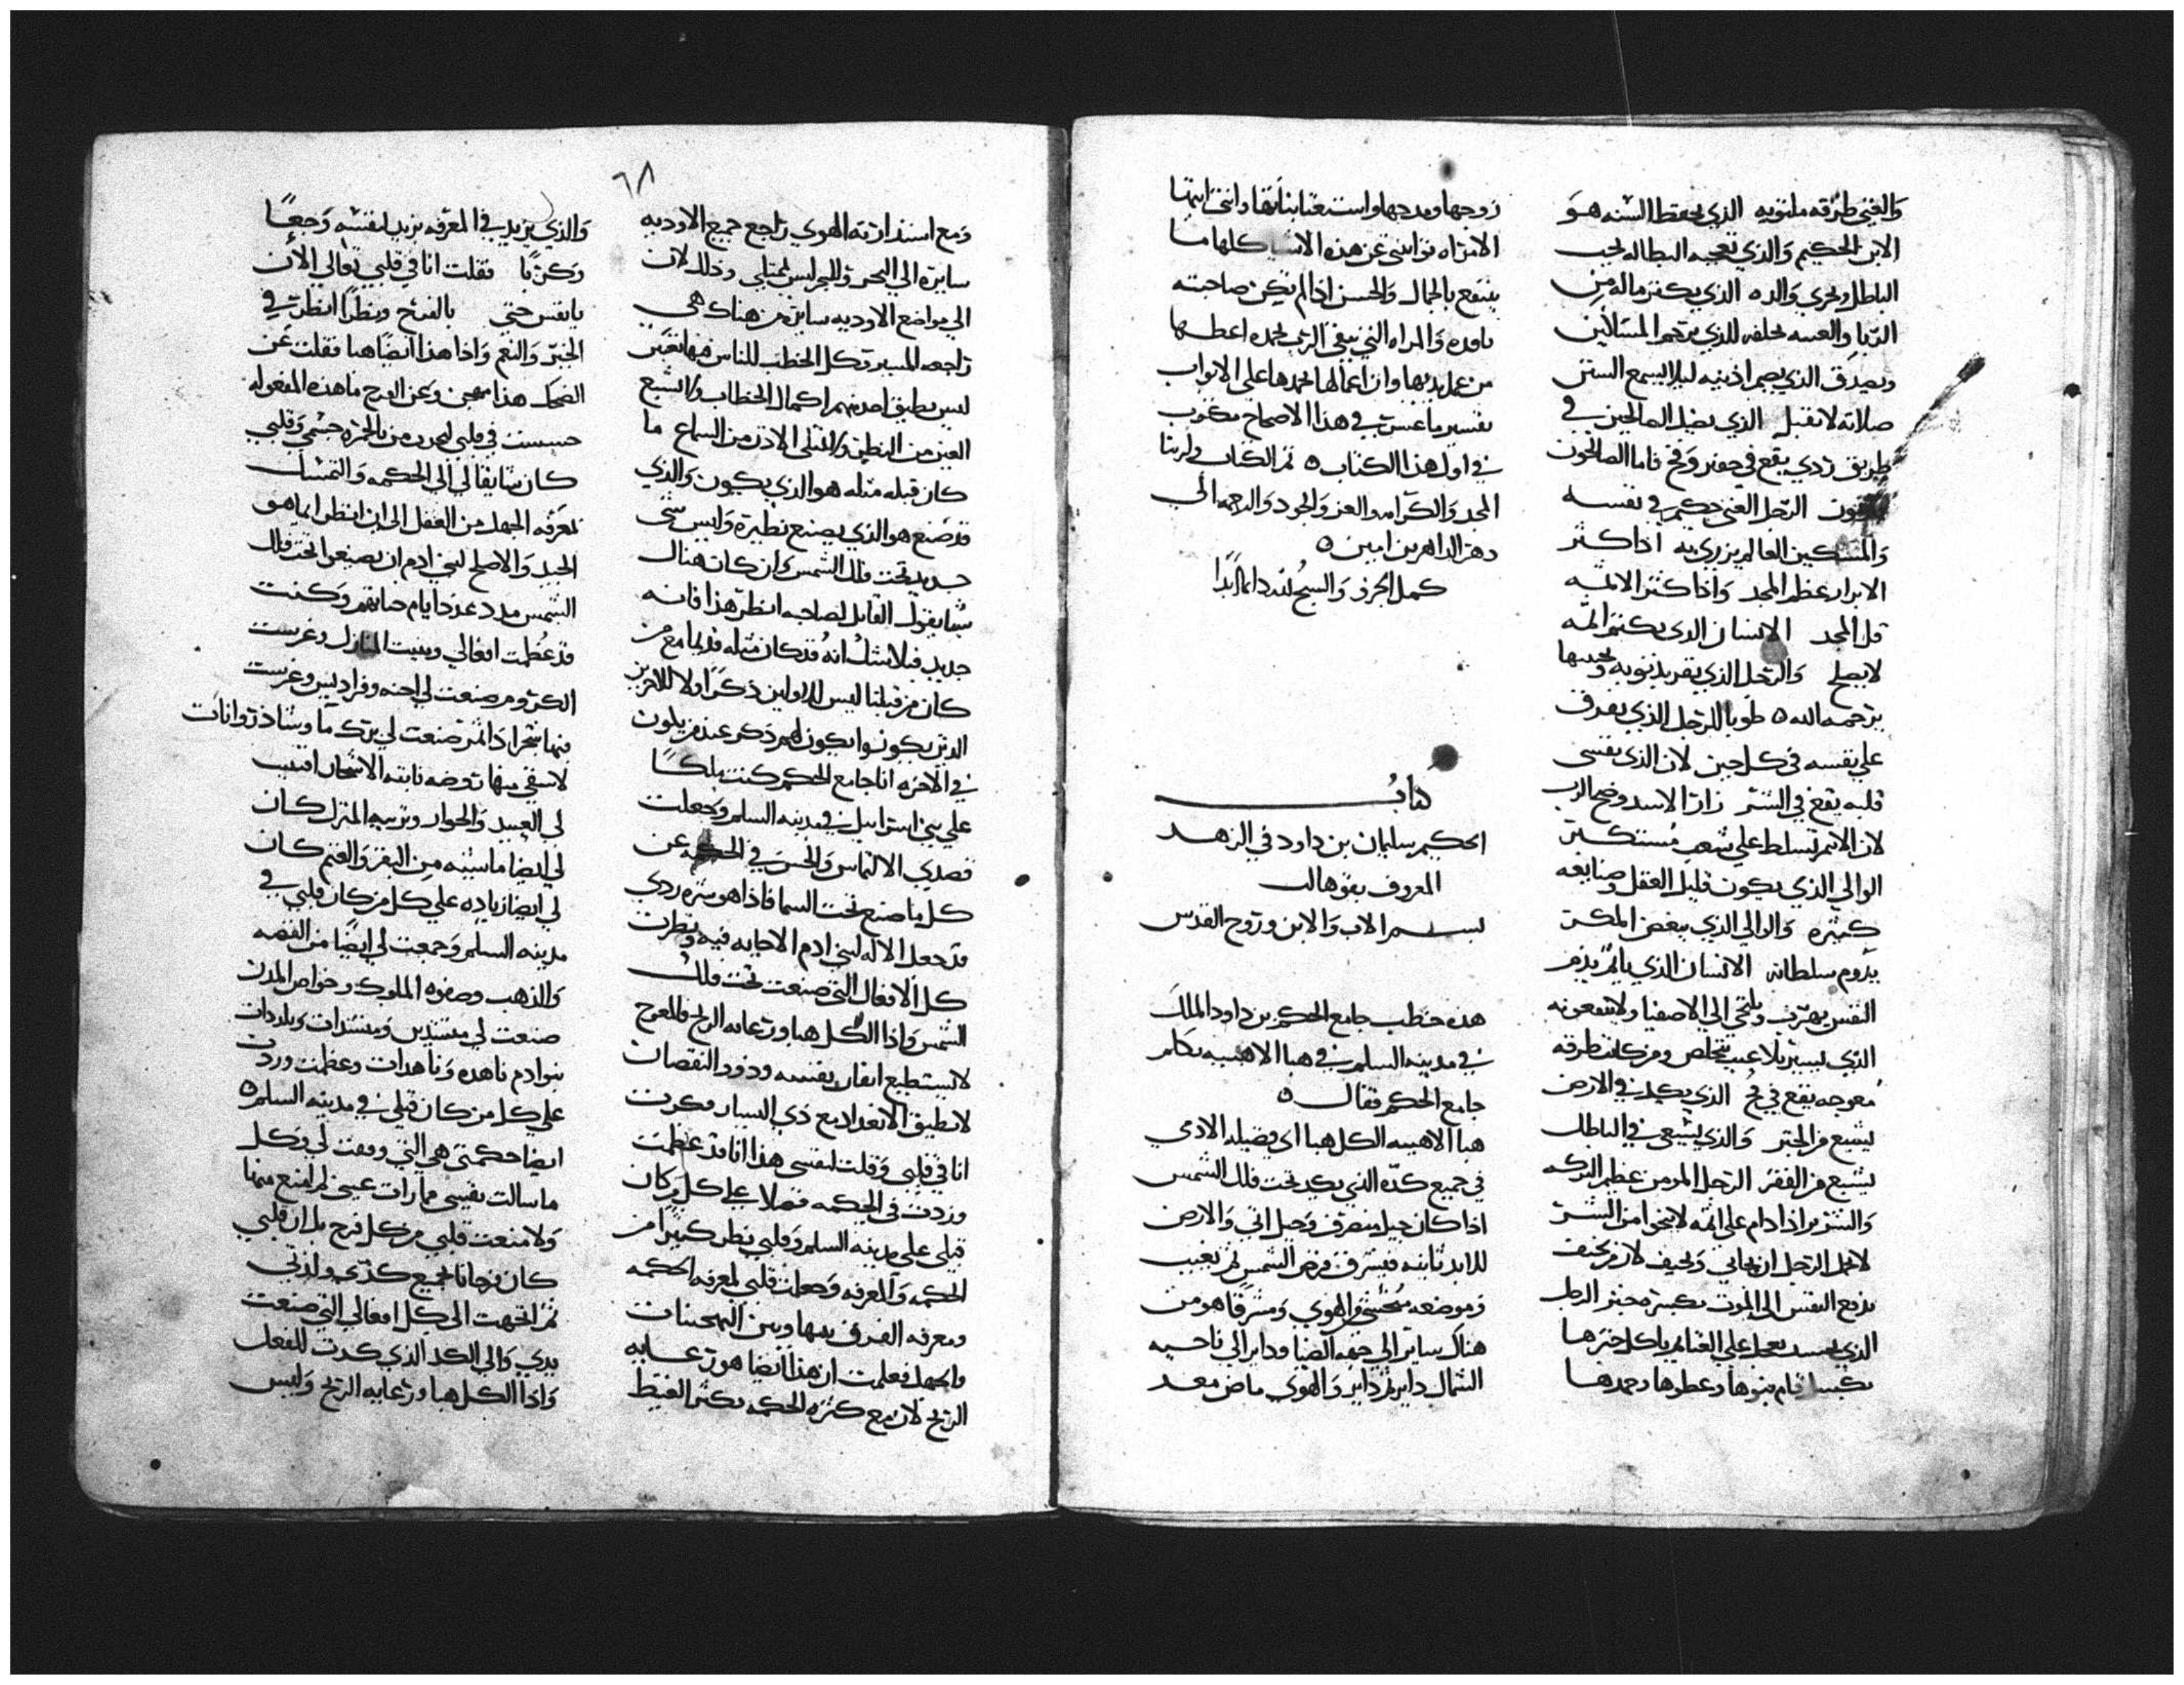 والغني طرقه ملتويه الذي يحفظ السنه هو
الابن الحكيم والذي تعجبه البطاله يحب
الباطل ويخزي والده الذي يكثر ماله من
الربا والعسه يخلفه للذي يرحم المساكين
ويصدق الذي يصم اذنيه ليلا يسمع السنن
صلاته لا تقبل الذي يضل الصالحين في
طريق ردي يقع في حفير وفخ فاما الصالحون
الرجل الغني حكيم في نفسه
والمسكين العالم يزري به اذا كثر
الابرار عظم المجد واذا كثر الاثمه
قل المجد الانسان الذي يكتم اثمه
لا يصلح والرجل الذي يقر بذنوبه
يرحمه الله ٥ طوبا للرجل الذي يفرق
علي نفسه في كل حين لان الذي يقسي
قلبه يقع في الشر زارا الاسد وضح الرب
لان الاثم تسلط علي شعب مستكبر
الوالي الذي يكون قليل العقل وصنايعه
كثيره والوالي الذي يبغض المكر
يدوم سلطانه الانسان الذي ياثم بدم
النفس يهرب ويلتجي الي الاصفيا ولا ينفعونه
الذي يسير بلا عيب يتخلص ومن كانت طرقه
معوجه يقع في فخ الذي يكد في الارض
يشبع من الخبز والذي يسعي في الباطل
يشبع من الفقر الرجل المومن عظيم البركه
والشرير اذا دام علي اثمه لا ينجوا من الشر
لا يحل الرجل ان يحابي ويحيف لان من يحيف
يدفع النفس الي الموت بكسره خبز الرجل
الذي يحسد يعجل علي الغنا
قام بنوها وعظموها وحمدها
زوجها ومدحها واستغنا بناتها وانتي ايتها
الامراه توانيتي عن هذه الاشيا كلها ما
ينتفع بالجمال والحسن اذا لم تكن صاحبته
والمراه التي تتقي الرب تحمد اعطها
من عمل يديها وان اعمالها تحمدها علي الابواب
تفسير ما عسر في هذا الاصحاح مكتوب
في اول هذا الكتاب ٥ تم الكتاب ولربنا
المجد والكرامه والعز والجود والرحمه الي
دهر الداهرين امين ٥
كمل الجزو والسبح لله دايما ابدا
كتاب
الحكيم سليمان بن داود في الزهد
المعروف بقوهالت
بسم الاب والابن وروح القدس
هذه خطب جامع الحكم بن داود الملك
في مدينه السلم في هبا الاهبيه تكلم
جامع الحكم فقال ٥
هبا الاهبيه الكل هبا اي فضيله الادمي
في جميع كده الذي يكد تحت فلك الشمس
اذا كان جيل ينصرف وجيل اتي والارض
للابد ثابته فيشرق قرص الشمس ثم يغيب
وموضعه والهوي ومشرقا هو من
هناك ساير الي جهه الضيا وداير الي ناحيه
الشمال داير ثم داير والهوي ماض معد
ومع استدارته الهوي راجع جميع الاوديه
سايره الي البحر والبحر ليس يمتلي وذلك لان
الي مواضع الاوديه ساير من هناك هي
راجعه المسير وكل الخطب للناس فيها
ليس يطيق احد منهم اكمال الخطاب ولا تشبع
العين من النظر ولا تمتلي الاذن من السماع ما
كان قبله مثله هو الذي يكون والذي
قد صنع هو الذي يصنع نظيره وليس شي
جديد تحت فلك الشمس وان كان هنال
شيا يقول القايل لصاحبه انظر هذا فانه
جديد فبلا شك انه قد كان مثله قديما مع من
كان من قبلنا ليس للاولين ذكرا ولا للاخرين
الذين يكونوا يكون لهم ذكر عند من يكون
في الاخره انا جامع الحكم كنت ملكا
علي بني اسراييل في مدينه السلم وجعلت
قصدي الالتماس والحس في الحكمه عن
كل ما صنع تحت السما فاذا هو شره ردي
قد جعل الاله لبني ادم الاجابه فيه ونظرت
كل الافعال التي صنعت تحت فلك
الشمس واذا الكل هبا ورعايه الريح فالمعوج
لا يستطيع اتقان نفسه وذوو النقصان
لا تطيق الانعداد مع ذي اليسار فكرت
انا في قلبي وقلت لنفسي هذا انا قد عظمت
وزدت في الحكمه فضلا علي كل من كان
قبلي علي مدينه السلم وقلبي نظر كثيرا من
الحكمه والمعرفه وجعلت قلبي لمعرفه الحكمه
ومعرفه الفرق بينها وبين التهجنات
والجهل فعلمت ان هذا ايضا هو رعايه
الريح لان مع كثره الحكمه يكثر الغيظ
والذي يزيد في المعرفه يزيد لنفسه وجعا
وكربا فقلت انا في قلبي تعالي الان
يا نفس حتي بالفرح وينظرا انظرت في
الخير والنعم واذا هذا ايضا هبا فقلت عن
الضحك هذا مهجن وعن الفرح ما هذه المفعوله
حسست في قلبي بالخمره جسمي وقلبي
كان شايقا لي الي الحكمه والتمسك
بمعرفه الجهل من العقل الي ان انظر ايما هو
الجيد والاصلح لبني ادم ان يصنعوا تحت فلك
الشمس مدد عدد ايام حياتهم وكنت
قد عظمت افعالي وبنيت المنازل وغرست
الكروم صنعت لي اجنه وفراديس وغرست
فيها شجرا ذا ثمر صنعت لي برك ما
لاسقي منها روضه نابته الاشجار اقتنيت
لي العبيد والجوار وتربيه المنزل كان
لي ايضا ماشيه من البقر والغنم كان
لي ايضا زياده علي كل من كان قبلي في
مدينه السلم وجمعت لي ايضا من الفضه
والذهب وصفوه الملوك وخواص المدن
صنعت لي منشدين ومنشدات ولذات
بنو ادم ناهده وناهدات وعظمت وزدت
علي كل من كان قبلي في مدينه السلم ٥
ايضا حكمتي هي التي وقفت لي وكل
ما سالت نفسي مما رات عيني لم امنع منها
ولا منعت قلبي من كل فرح بل ان قلبي
كان فرحانا بجميع كدي ولذتي
ثم اتجهت الي كل افعالي التي صنعت
يدي والي الكد الذي كدت للفعل
واذا الكل هبا ورعايه الريح وليس
٦٨